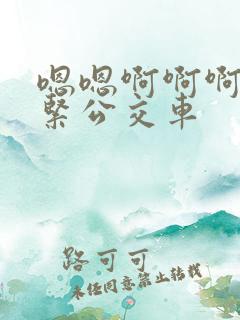 嗯嗯啊啊啊
紧公交车
路可可
未经同意禁止转载